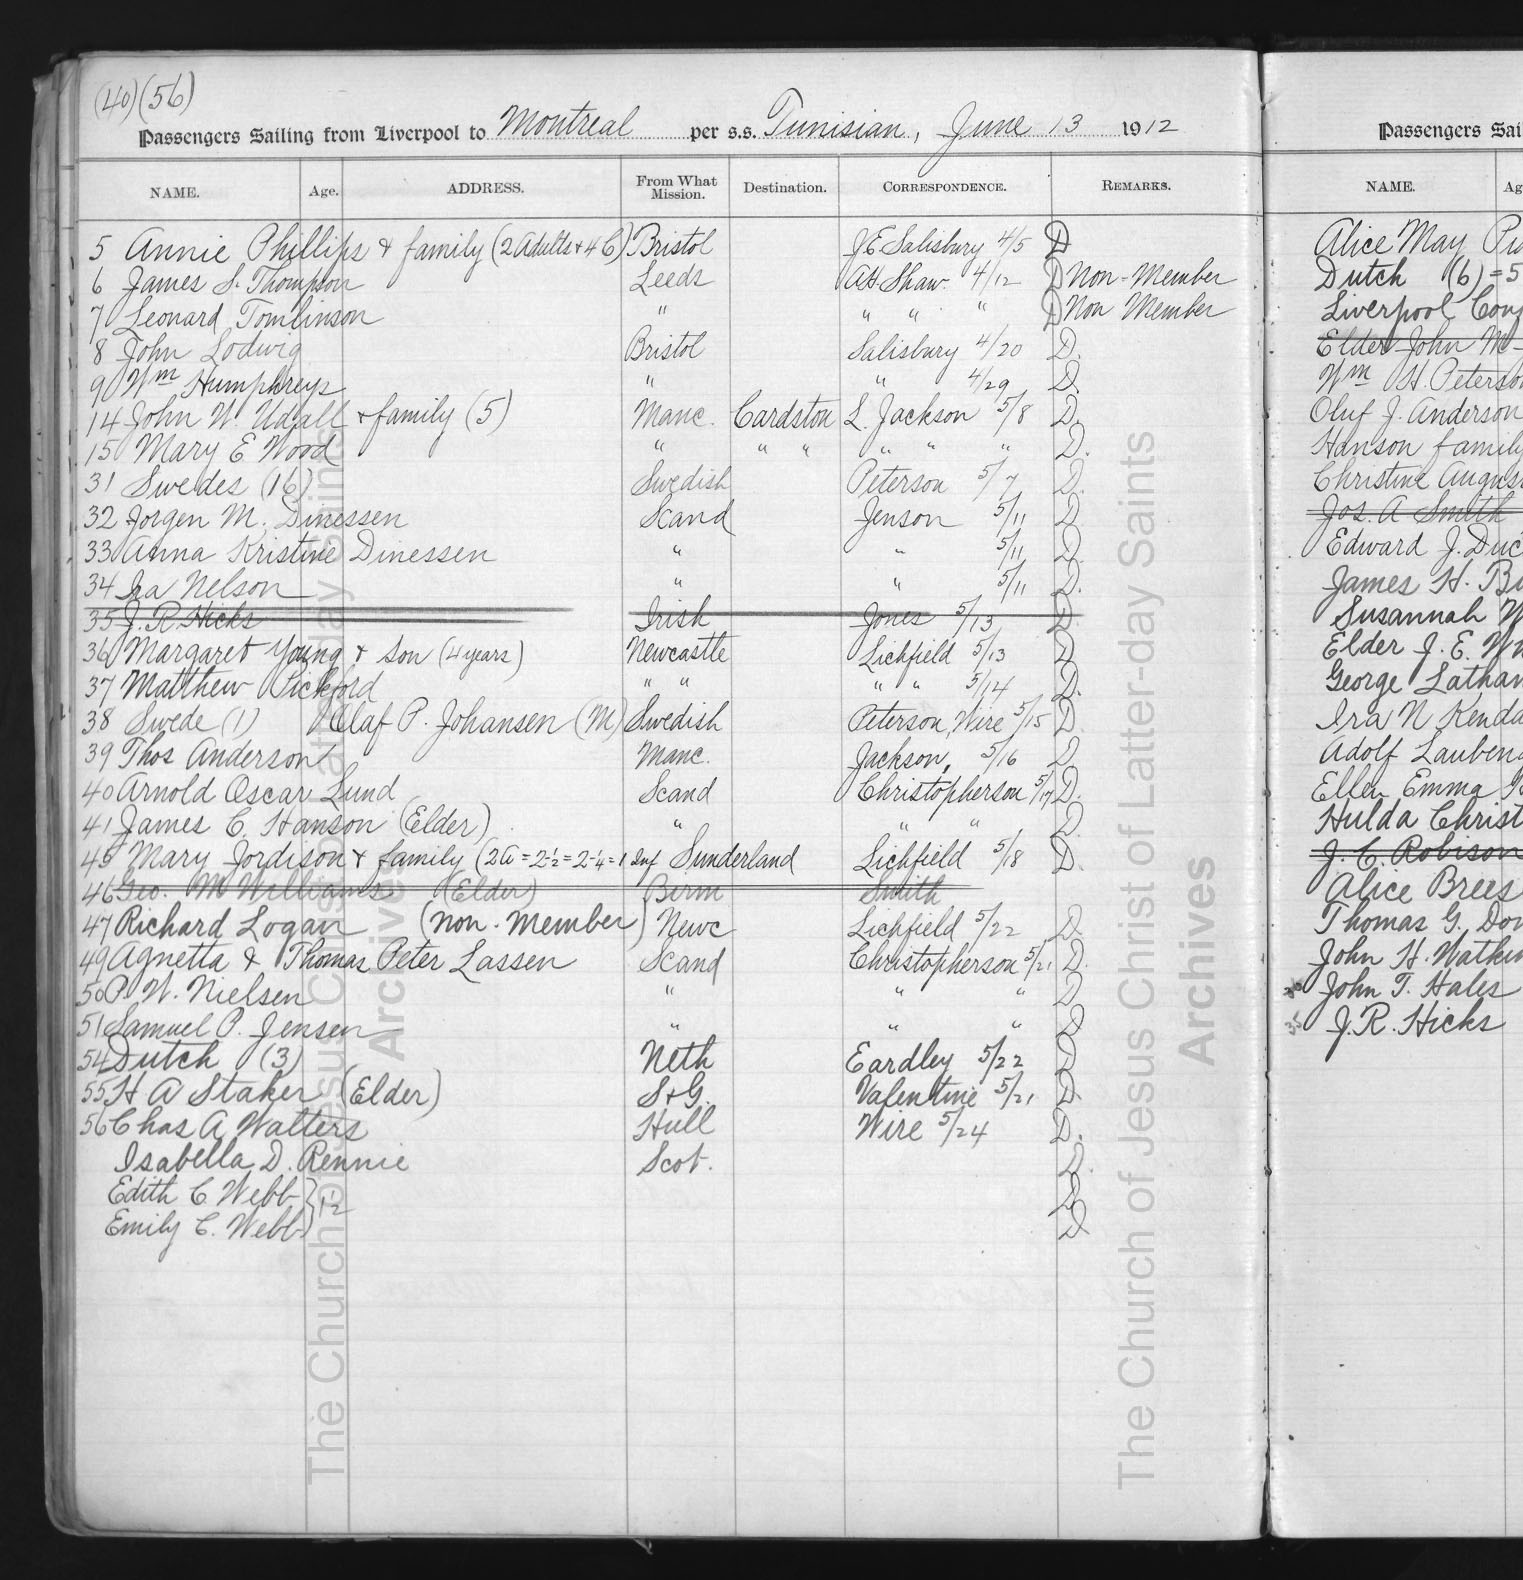 (40)(56)
Passengers Sailing from Liverpool to Montreal per s.s. Tunisian, June 13 1912
NAME. Age. ADDRESS. From What Mission. Destination. CORRESPONDENCE. REMARKS.
5 Annie Phillips & family (2 Adults & 4 C) Bristol J E Salisbury 4/5 D
6 James S. Thompson Leeds A.H. Shaw 4/12 D Non-Member
7 Leonard Tomlinson " " " " D Non Member
8 John Lodwig Bristol Salisbury 4/20 D.
9 Wm Humphreys " " 4/29 D.
14 John W. Udall & family (5) Manc. Cardston L. Jackson 5/8 D.
15 Mary E Wood " " " " " " D.
31 Swedes (16) Swedish Peterson 5/7 D.
32 Jorgen M. Dinessen Scand Jenson 5/11 D.
33 Anna Kristine Dinessen " " 5/11 D.
34 Ira Nelson " " 5/11 D.
35 J. R Hicks Irish Jones 5/13 D.
36 Margaret Young & son (4 years) Newcastle Lichfield 5/13 D
37 Matthew Pickford " " " " 5/14 D.
38 Swede (1) Olaf P. Johansen (M) Swedish Peterson, Wire 5/15 D.
39 Thos Anderson Manc. Jackson, 5/16 D
40 Arnold Oscar Lund Scand Christopherson 5/17 D.
41 James C. Hanson (Elder) " " " D.
45 Mary Jordison & family (2A = 2-½ = 2-¼ = 1 Inf Sunderland Lichfield 5/18 D.
46 Geo. M Williams (Elder) Birm Smith
47 Richard Logan (Non-Member) Newc Lichfield 5/22 D.
49 Agnetta & Thomas Peter Lassen Scand Christopherson 5/21 D.
50 P. W. Nielsen " " " D
51 Samuel P. Jensen " " " D
54 Dutch (3) Neth Eardley 5/22 D
55 H A Staker (Elder) S & G. Valentine 5/21 D
56 Chas A Watters Hull Wire 5/24 D.
Isabella D. Rennie Scot. D.
Edith C. Webb } 12 D
Emily C. Webb D
Passengers Sai
NAME. Ag
Alice May
Dutch (6) = 5
Liverpool Con
Elder John M
Wm H. Peterso
Oluf J. Anderson
Hanson family
Christine Augus
Jos. A Smith
Edward J. Duc
James H. Bu
Susannah W
Elder J. E. W
George Latham
Ira N Kenda
Adolf Lauben
Ellen Emma
Hulda Christ
J. C. Robison
Alice Brees
Thomas G. Don
John H. Watkin
John T. Hales
35 J. R. Hicks
The Church of Jesus Christ of Latter-day Saints
Archives
The Church of Jesus Christ of Latter-day Saints
Archives